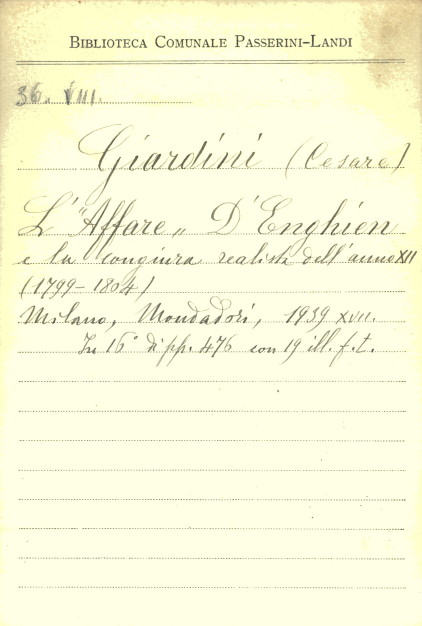 BIBLIOTECA COMUNALE PASSERINI-LANDI
36. VIII.
Giardini (Cesare)
L'"Affare" D'Enghien
e la congiura realista dell'anno XII
(1799-1804)
Milano, Mondadori, 1939 XVII.
In 16° di pp. 476 con 19 ill. f. t.